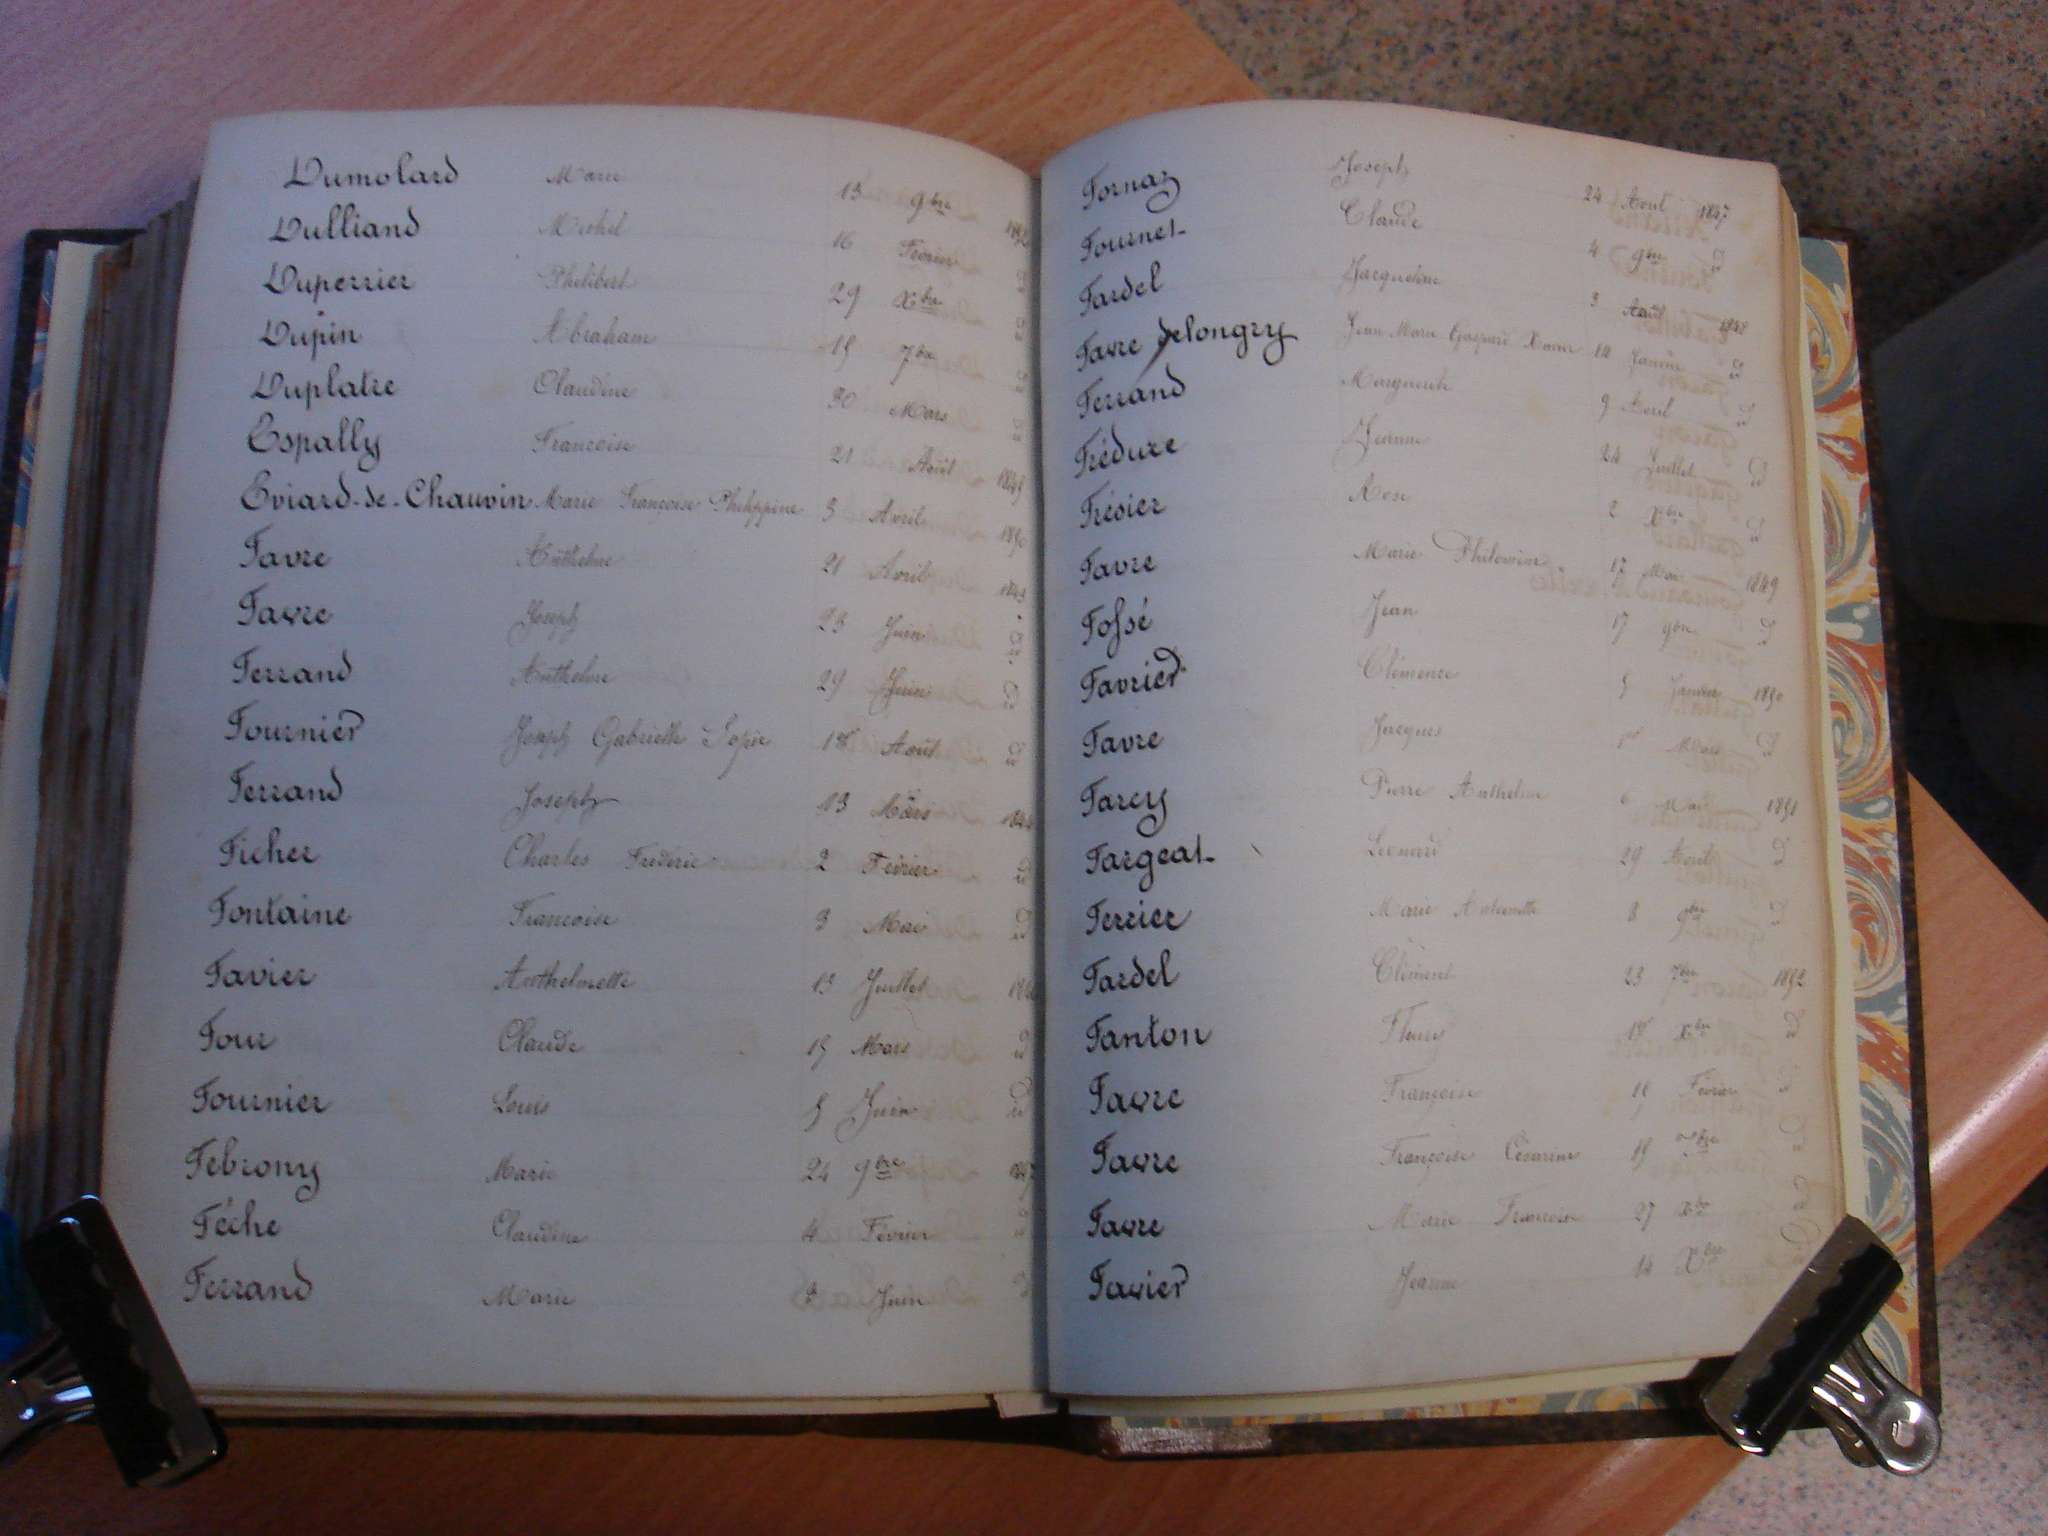 Dumolard Marie 13 9bre
Dulliand Michel 16 Février
Duperrier Philibert 29 Xbre
Dupin Abraham 15 7bre
Duplatre Claudine 30 Mars
Espally Francoise 21 Août 1843
Eviard-de-Chauvin Marie Françoise Philippine 3 Avril
Favre Anthelme 21 Avril
Favre Joseph 23 Juin id
Ferrand Anthelme 29 Juin id
Fournier Joseph Gabrielle Sopie 18 Août id
Ferrand Joseph 13 Mars
Ficher Charles Frédéric 2 Février id
Fontaine Francoise 3 Mars id
Favier Anthelmette 13 Juillet
Four Claude 15 Mars id
Fournier Louis 5 Juin id
Febrony Marie 24 9bre
Féche Claudine 4 Février id
Ferrand Marie Juin id
Fornaz Joseph 24 Avril 1847
Fournet Claude 4 9bre id
Fardel Jacqueline 3 Août 1848
Favre delongry Jean Marie Gaspard Xavier Janvier id
Ferrand Marguerite 9 Avril id
Frédure Jeanne 24 Juillet id
Frésier Rose 2 Xbre id
Favre Marie Philomine 17 1849
Fossé Jean 17 9bre id
Favrier Clémence 5 Janvier 1850
Favre Jacques 1er id
Farcy Pierre Anthelme 6 1851
Fargeat Léonard 29 Août id
Ferrier Marie Antoinette 8 9bre id
Fardel Clément 23 7bre 1852
Fanton Fleury 18 Xbre id
Favre Françoise 15 Février id
Favre Françoise Césarine 15 id
Favre Marie Francoise 27 Xbre id
Favier Jeanne 14 Xbre id